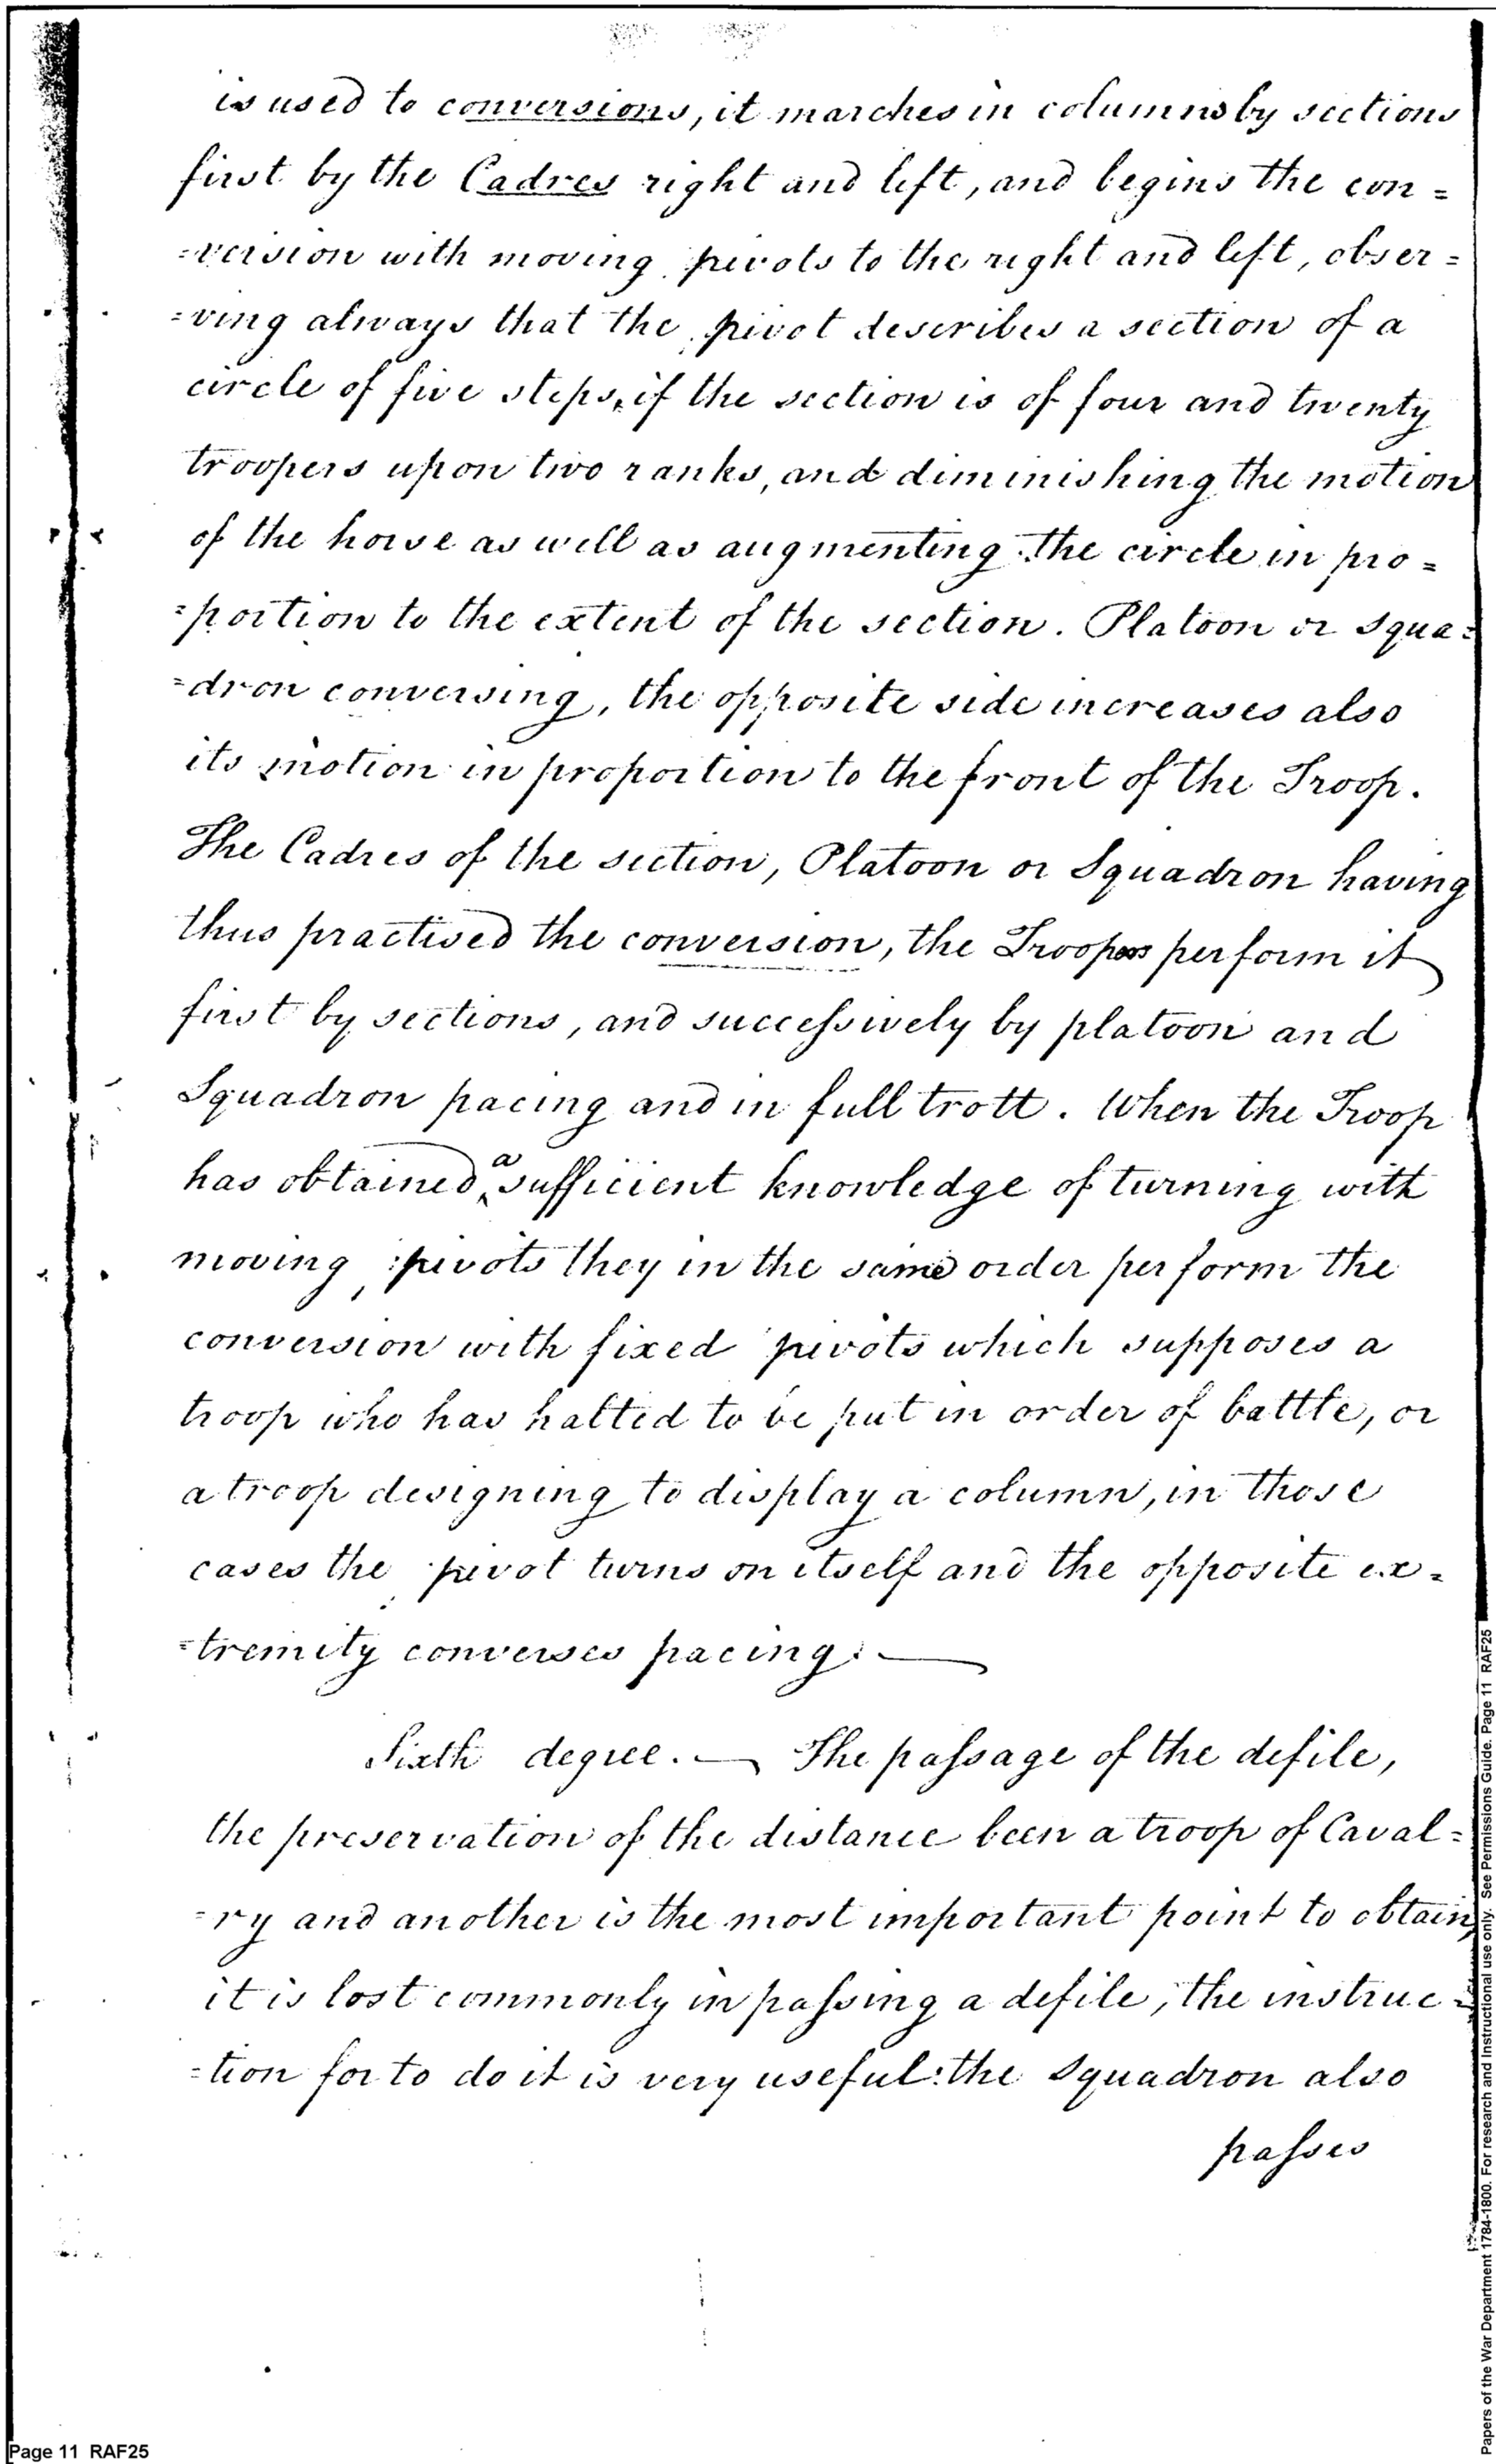 is used to conversions, it marches in columns by sections
first by the Cadres right and left, and begins the con=
=version with moving pivots to the right and left, obser=
=ving always that the pivot describes a section of a
circle of five steps, if the section is of four and twenty
troopers upon two ranks, and diminishing the motion
of the horse as well as augmenting the circle in pro=
=portion to the extent of the section. Platoon or squa=
=dron conversing, the opposite side increases also
its motion in proportion to the front of the Troop.
The Cadres of the section, Platoon or Squadron having
thus practised the conversion, the Troopers perform it
first by sections, and successively by platoon and
Squadron pacing and in full trott. When the Troop
has obtained a sufficient knowledge of turning with
moving pivots they in the same order perform the
conversion with fixed pivots which supposes a
troop who has halted to be put in order of battle, or
a troop designing to display a column, in those
cases the pivot turns on itself and the opposite ex=
=tremity converses pacing. —
Sixth degree. — The passage of the defile,
the preservation of the distance been a troop of Caval=
=ry and another is the most important point to obtain,
it is lost commonly in passing a defile, the instruc=
=tion for to do it is very useful: the squadron also
passes
Page 11 RAF25
Papers of the War Department 1784-1800. For research and Instructional use only. See Permissions Guide. Page 11 RAF25